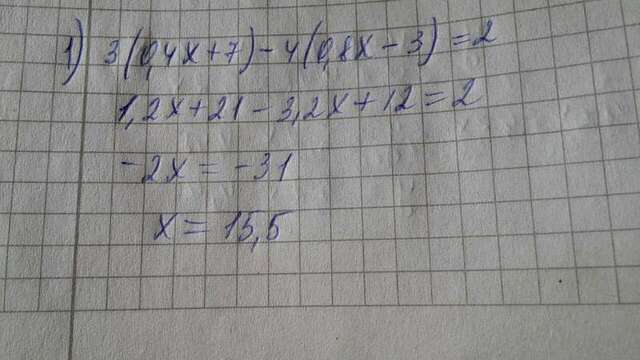 1) 3(0,4x+7)-4(0,8x-3)=2
1,2x+21-3,2x+12=2
-2x=-31
x=15,5